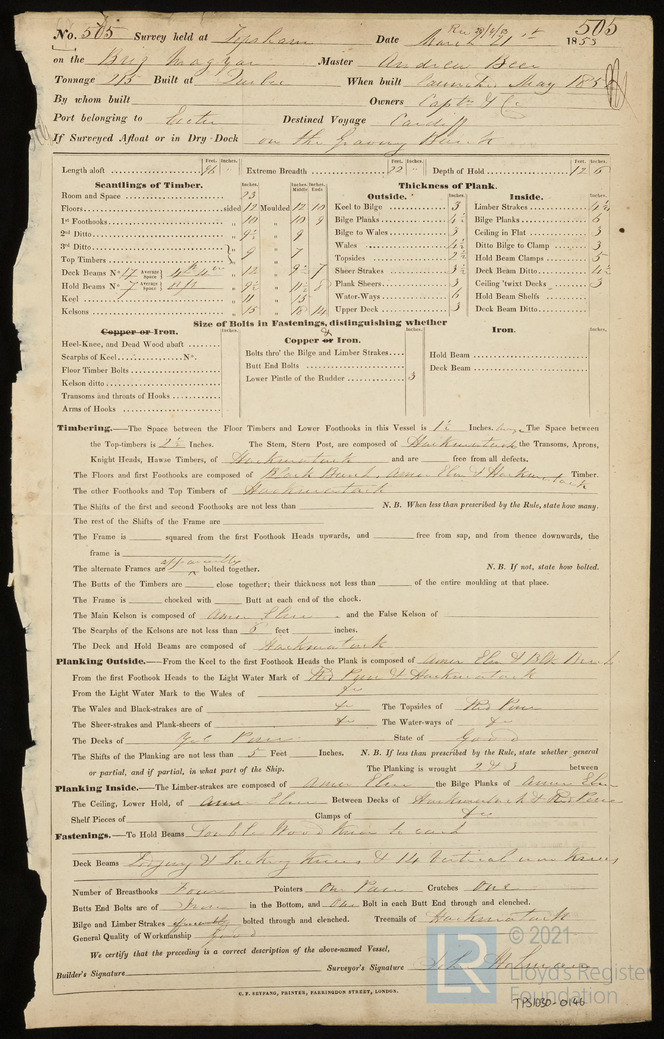 505
Rec 28/4/53
No. 505 Survey held at Topsham Date March 21st 1853
on the Brig Magyar Master Andrew Beer
Tonnage 215 Built at Quebec When built launched May 185
By whom built Owners Captn & Co
Port belonging to Exeter Destined Voyage Cardiff
If Surveyed Afloat or in Dry Dock on the Graving Bank
Feet. Inches. Feet. Inches. Feet. Inches.
Length aloft 96 Extreme Breadth 22 Depth of Hold 12 6
Scantlings of Timber.
Inches. Inches Middle Inches Ends
Room and Space 23
Floors sided 12 Moulded 12 10
1st Foothooks " 10 " 10 9
2nd Ditto " 9½ " 9
3rd Ditto
Top Timbers " 9 " 7
Deck Beams No. 17 Average Space " 12 " 9½ 7
Hold Beams No. 7 Average Space " 9½ " 11½ 8
Keel " 11 " 15
Kelsons " 15 " 18 14
Thickness of Plank.
Outside. Inches. Inside. Inches.
Keel to Bilge 3 Limber Strakes 4½
Bilge Planks 4½ Bilge Planks 6
Bilge to Wales 3 Ceiling in Flat 3
Wales 4½ Ditto Bilge to Clamp 3
Topsides 2½ Hold Beam Clamps 5
Sheer Strakes 3½ Deck Beam Ditto 4½
Plank Sheers 3 Ceiling 'twixt Decks 3
Water-Ways 6 Hold Beam Shelfs
Upper Deck 3 Deck Beam Ditto
Size of Bolts in Fastenings, distinguishing whether
Copper or Iron. Inches.
Heel-Knee, and Dead Wood abaft
Scarphs of Keel No.
Floor Timber Bolts
Kelson ditto
Transoms and throats of Hooks
Arms of Hooks
Copper or Iron. Inches.
&
Bolts thro' the Bilge and Limber Strakes
Butt End Bolts
Lower Pintle of the Rudder 3
Iron. Inches.
Hold Beam
Deck Beam
Timbering.—The Space between the Floor Timbers and Lower Foothooks in this Vessel is 1½ Inches. The Space between
the Top-timbers is 2½ Inches. The Stem, Stern Post, are composed of Hackmatack the Transoms, Aprons,
Knight Heads, Hawse Timbers, of Hackmatack and are free from all defects.
The Floors and first Foothooks are composed of Black Birch, Amer Elm & Hackmatack Timber.
The other Foothooks and Top Timbers of Hackmatack
The Shifts of the first and second Foothooks are not less than N. B. When less than prescribed by the Rule, state how many.
The rest of the Shifts of the Frame are
The Frame is squared from the first Foothook Heads upwards, and free from sap, and from thence downwards, the
frame is
The alternate Frames are apparently bolted together. N. B. If not, state how bolted.
The Butts of the Timbers are close together; their thickness not less than of the entire moulding at that place.
The Frame is chocked with Butt at each end of the chock.
The Main Kelson is composed of Amer Elm and the False Kelson of
The Scarphs of the Kelsons are not less than 6 feet inches.
The Deck and Hold Beams are composed of Hackmatack
Planking Outside.—From the Keel to the first Foothook Heads the Plank is composed of Amer Elm & Blk Birch
From the first Foothook Heads to the Light Water Mark of Red Pine & Hackmatack
From the Light Water Mark to the Wales of do
The Wales and Black-strakes are of do The Topsides of Red Pine
The Sheer-strakes and Plank-sheers of do The Water-ways of do
The Decks of Yel Pine State of Good
The Shifts of the Planking are not less than 5 Feet Inches. N. B. If less than prescribed by the Rule, state whether general
or partial, and if partial, in what part of the Ship. The Planking is wrought 2 & 3 between
Planking Inside.—The Limber-strakes are composed of Amer Elm the Bilge Planks of Amer Elm
The Ceiling, Lower Hold, of Amer Elm Between Decks of Hackmatack & Red Pine
Shelf Pieces of Clamps of do
Fastenings.—To Hold Beams Double Wood Knees to each
Deck Beams Lodging & Locking Knees & 14 Vertical iron Knees
Number of Breasthooks Four Pointers One Pair Crutches One
Butts End Bolts are of Iron in the Bottom, and One Bolt in each Butt End through and clenched.
Bilge and Limber Strakes bolted through and clenched. Treenails of Hackmatack
General Quality of Workmanship Good
We certify that the preceding is a correct description of the above-named Vessel,
Builder's Signature Surveyor's Signature John Holman
C. F. SEYFANG, PRINTER, FARRINGDON STREET, LONDON.
LR
© 2021
Lloyd's Register
Foundation
TPS1030-0146